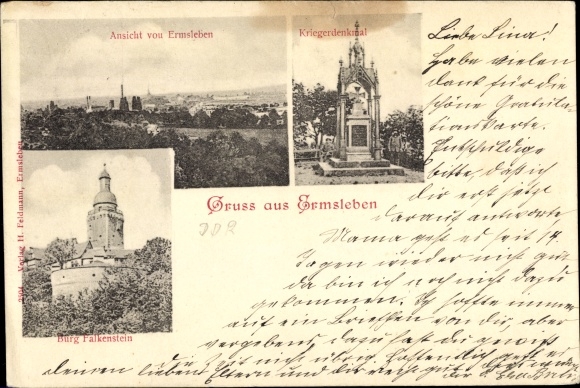 Ansicht von Ermsleben
Kriegerdenkmal
Gruss aus Ermsleben
Burg Falkenstein
Verlag H. Feldmann, Ermsleben
Liebe Lina!
Habe vielen
dank für die
schöne Gratula-
tionskarte.
Entschuldige
bitte, daß ich
dir erst jetzt
darauf antworte
Mama geht es seit 14
Tagen wieder nicht gut
da bin ich noch nicht dazu
gekommen. Ich hoffte immer
auf ein Briefchen von dir, aber
vergebens, dazu hast du gewiß
die Zeit nicht übrig. Hoffentlich geht es
deinen lieben Eltern und dir recht gut.